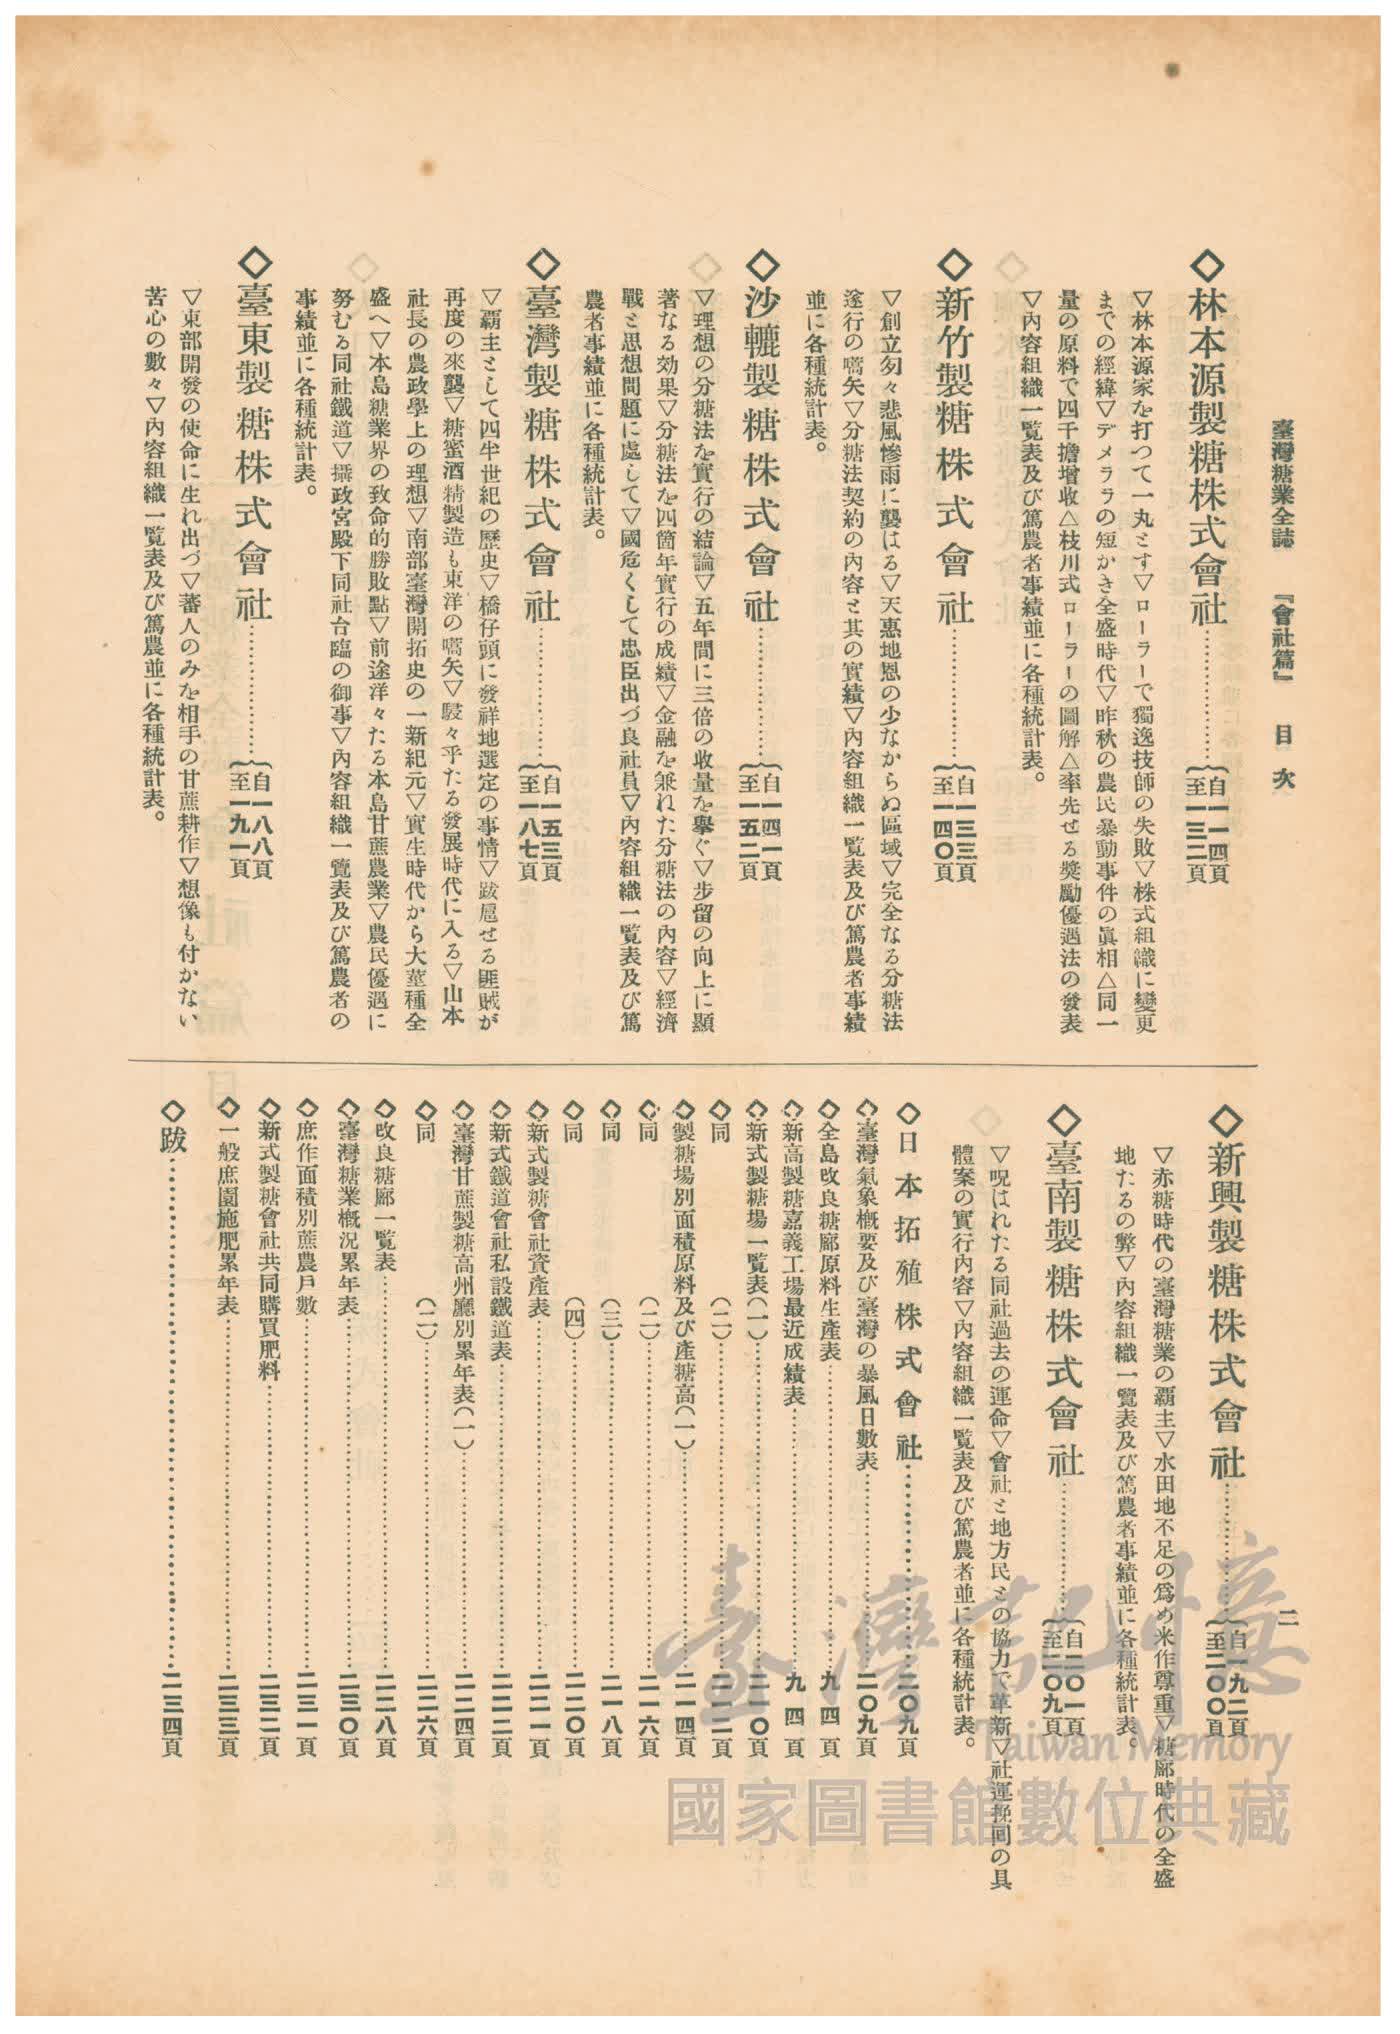 臺灣糖業全誌 『會社篇』 目次
二
◇林本源製糖株式會社…………{自一一四頁 至一三二頁
▽林本源家を打つて一丸とす▽ローラーで獨逸技師の失敗▽株式組織に變更
までの經緯▽デメラの短かき全盛時代▽昨秋の農民暴動事件の眞相△同一
量の原料で四千擔增收△枝川式ローラーの圖解△率先せる奬勵優遇法の發表
▽內容組織一覧表及び篤農者事績並に各種統計表。
◇新竹製糖株式會社…………{自一三三頁 至一四〇頁
▽創立匆々悲風慘雨に襲はる▽天惠地恩の少なからぬ區域▽完全なる分糖法
遂行の嚆矢▽分糖法契約の內容と其の實績▽內容組織一覧表及び篤農者事績
並に各種統計表。
◇沙轆製糖株式會社…………{自一四一頁 至一五二頁
▽理想の分糖法を實行の結論▽五年間に三倍の收量を擧ぐ▽步留の向上に顯
著なる効果▽分糖法を四箇年實行の成績▽金融を兼れた分糖法の內容▽經濟
戰と思想問題に處して▽國危くして忠臣出づ良社員▽內容組織一覧表及び篤
農者事績並に各種統計表。
◇臺灣製糖株式會社…………{自一五三頁 至一八七頁
▽覇主として四半世紀の歷史▽橋仔頭に發祥地選定の事情▽跋扈せる匪賊が
再度の來襲▽糖蜜酒精製造も東洋の嚆矢▽駸々乎たる發展時代に入る▽山本
社長の農政學上の理想▽南部臺灣開拓史の一新紀元▽實生時代から大莖種全
盛へ▽本島糖業界の致命的勝敗點▽前途洋々たる本島甘蔗農業▽農民優遇に
努むる同社鐵道▽攝政宮殿下同社台臨の御事▽內容組織一覽表及び篤農者の
事績並に各種統計表。
◇臺東製糖株式會社…………{自一八八頁 至一九一頁
▽東部開發の使命に生れ出づ▽蕃人のみを相手の甘蔗耕作▽想像も付かない
苦心の數々▽內容組織一覧表及び篤農並に各種統計表。
◇新興製糖株式會社…………{自一九二頁 至二〇〇頁
▽赤糖時代の臺灣糖業の覇主▽水田地不足の爲め米作尊重▽糖廍時代の全盛
地たるの弊▽內容組織一覽表及び篤農者事績並に各種統計表。
◇臺南製糖株式會社…………{自二〇一頁 至二〇九頁
▽呪はれたる同社過去の運命▽會社と地方民との協力で革新▽社運挽回の具
體案の實行內容▽內容組織一覧表及び篤農者並に各種統計表。
◇日本拓殖株式會社…………二〇九頁
◇臺灣氣象槪要及び臺灣の暴風日數表…………二〇九頁
◇全島改良糖廍原料生產表…………九四頁
◇新高製糖嘉義工場最近成績表…………九四頁
◇新式製糖場一覧表(一)…………二一〇頁
◇同 (二)…………二一二頁
◇製糖場別面積原料及び產糖高(一)…………二一四頁
◇同 (二)…………二一六頁
◇同 (三)…………二一八頁
◇同 (四)…………二二〇頁
◇新式製糖會社資產表…………二二一頁
◇新式鐵道會社私設鐵道表…………二二二頁
◇臺灣甘蔗製糖高州廳別累年表(一)…………二二四頁
◇同 (二)…………二二六頁
◇改良糖廍一覧表…………二二八頁
◇臺灣糖業槪況累年表…………二三〇頁
◇庶作面積別蔗農戶數…………二三一頁
◇新式製糖會社共同購買肥料…………二三二頁
◇一般庶園施肥累年表…………二三三頁
◇跋…………二三四頁
臺灣記憶
Taiwan Memory
國家圖書館數位典藏